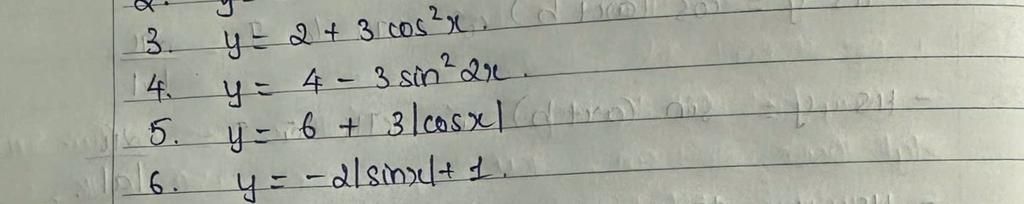 2. y
3. y = 2 + 3 cos²x.
4. y = 4 - 3 sin² 2x.
5. y = 6 + 3|cosx|
6. y = -2|sinx| + 1.